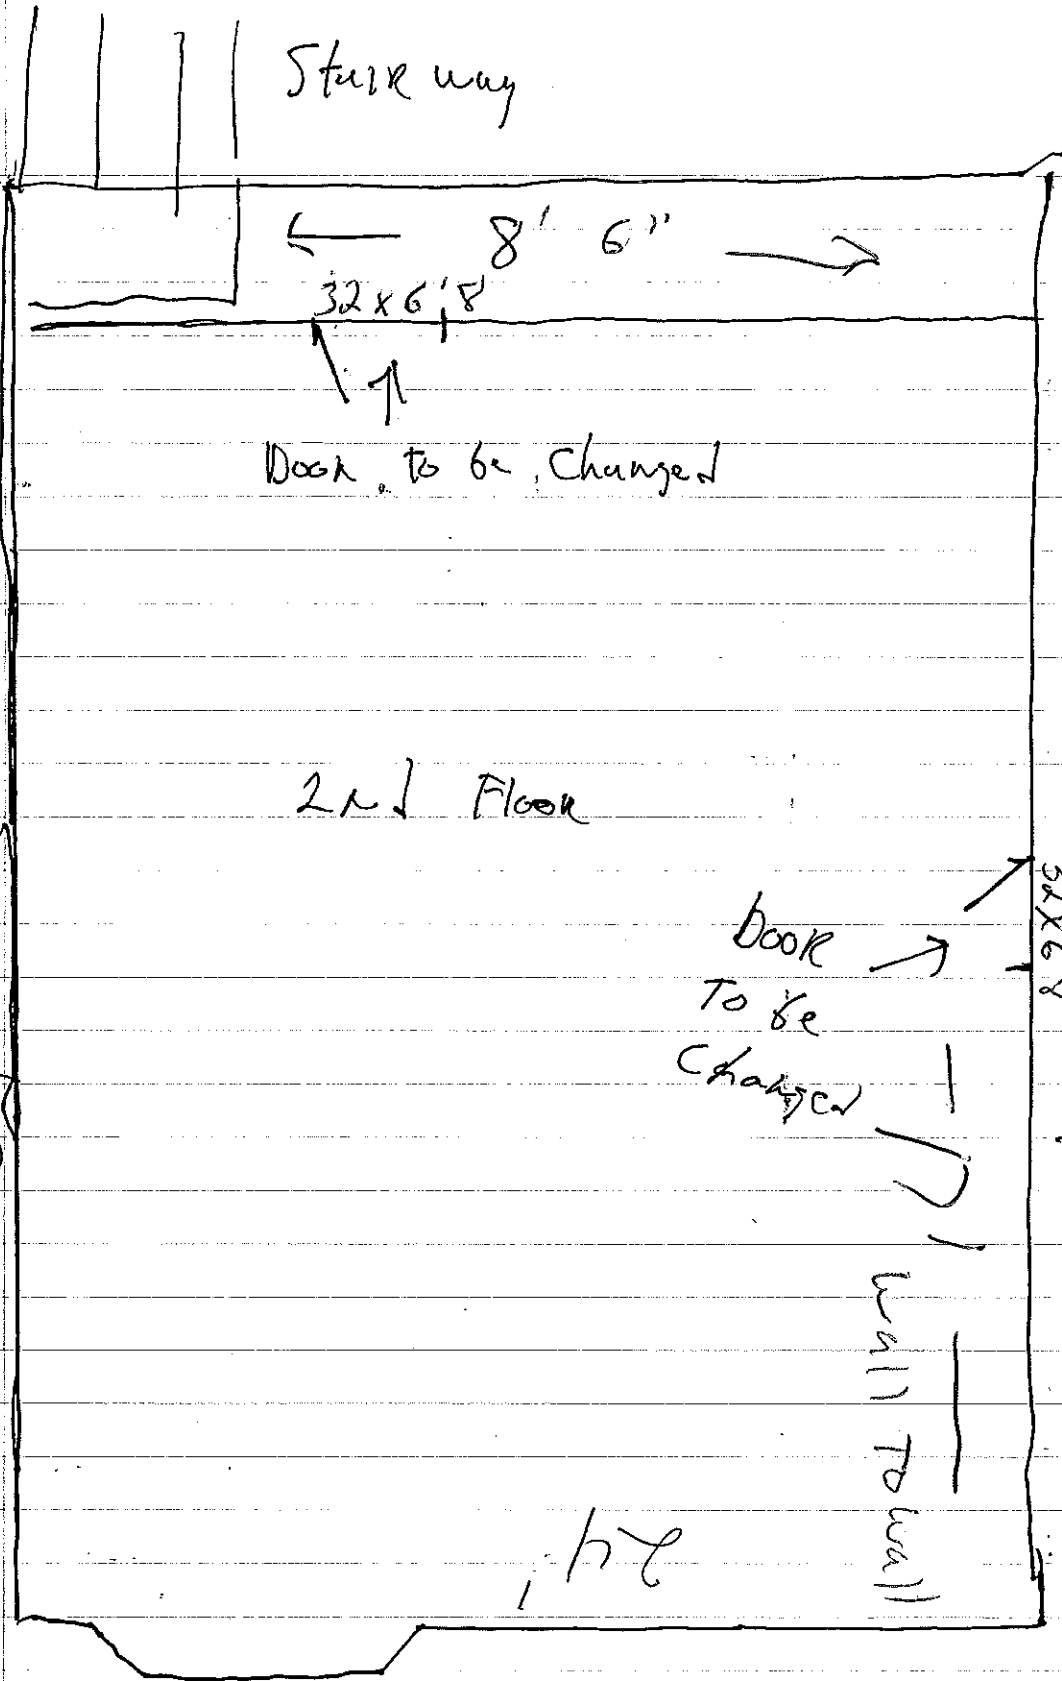 Stairway
8' 6"
32 x 6'8
Door to be Changed
2nd Floor
Door
To be
Changed
32 x 6 8
17'
Wall To Wall
24'